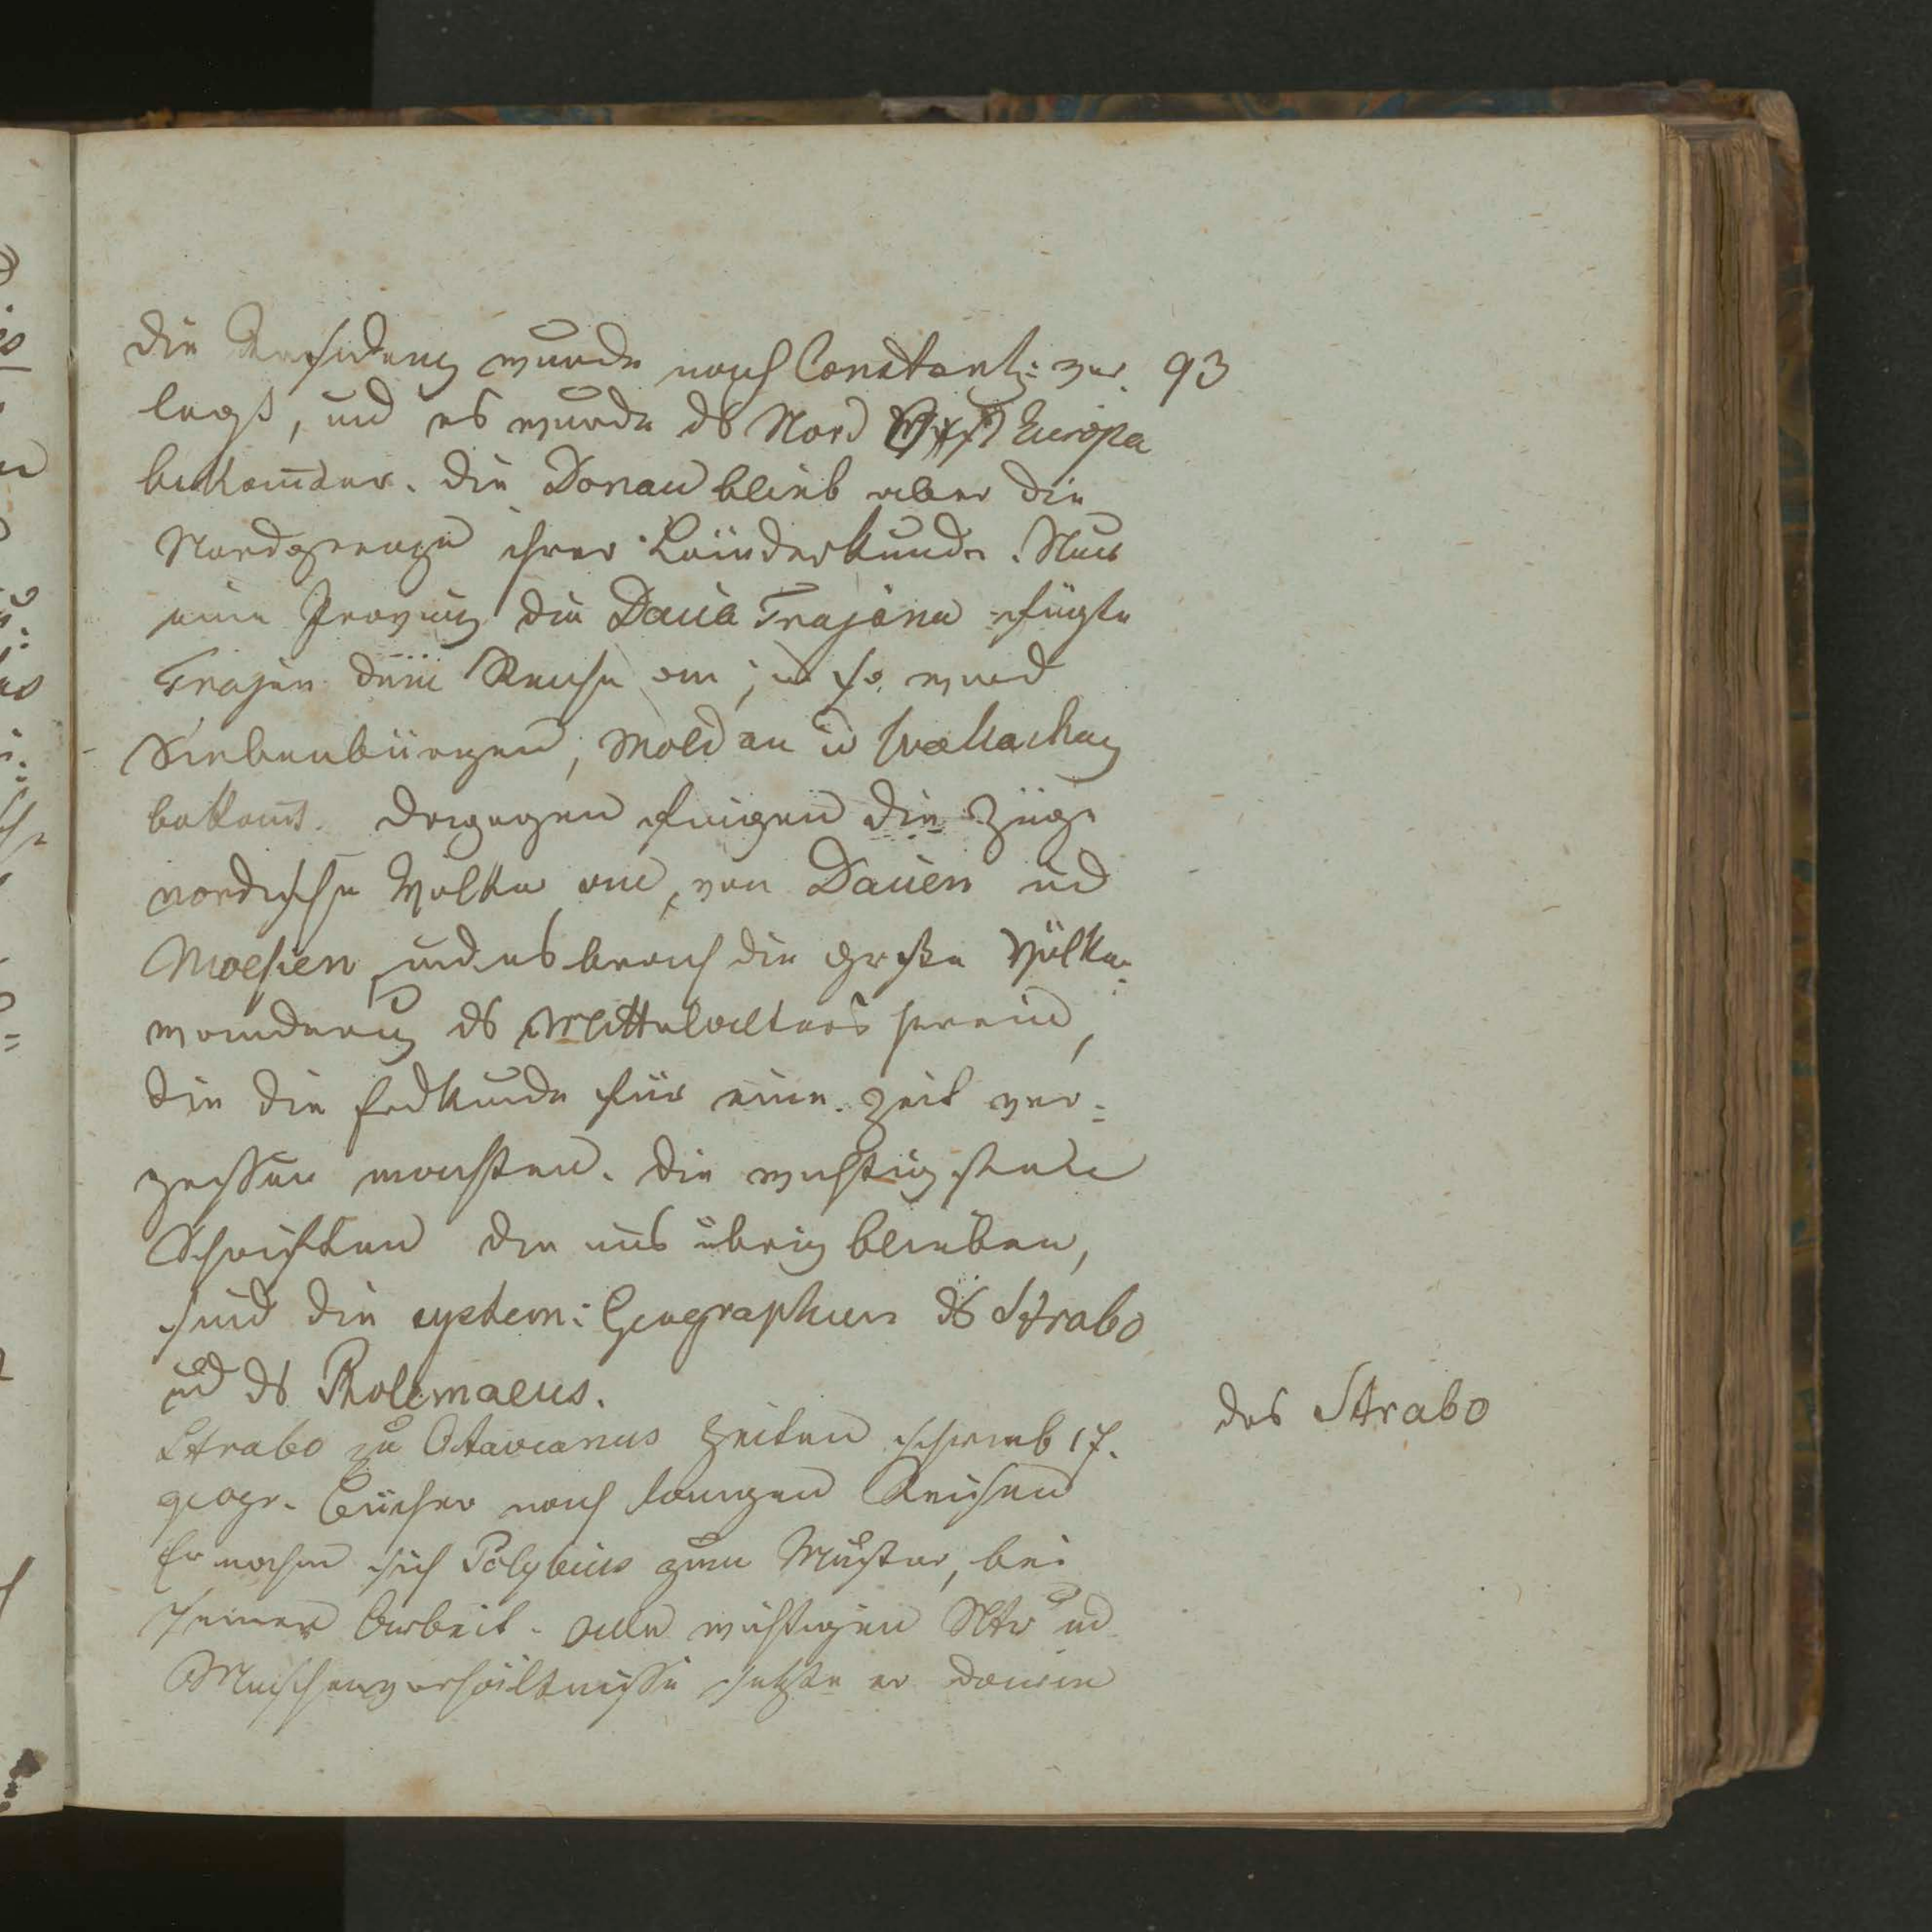 die Residenz wurde nach Constant: ver. 93
legt, und es wurde ds Nord Europa
bekannter. die Donau blieb aber die
Nordgrenze ihrer Länderkunde. Nur
eine Provinz die Dacia Trajana fügte
Trajan dem Reiche an; u so ward
Siebenbürgen, Moldau u Wallachey
bekannt. dagegen fingen die Züge
nordische Völker an, von Dacien und
Moesien und es brach die große Völker:
wanderung ds Mittelalters herein,
die die Erdkunde für eine Zeit ver=
gessen machten. die wichtigsten
Schriften die uns übrig blieben,
sind die system: Geographien ds Strabo
und ds Ptolemaeus.
des Strabo
Strabo zu Octavianus Zeiten schrieb 17.
geogr. Bücher nach langen Reisen
Er nahm sich Polybius zum Muster, bei
seiner Arbeit. alle wichtigen Ntr und
Menschenverhältnisse setzte er darin